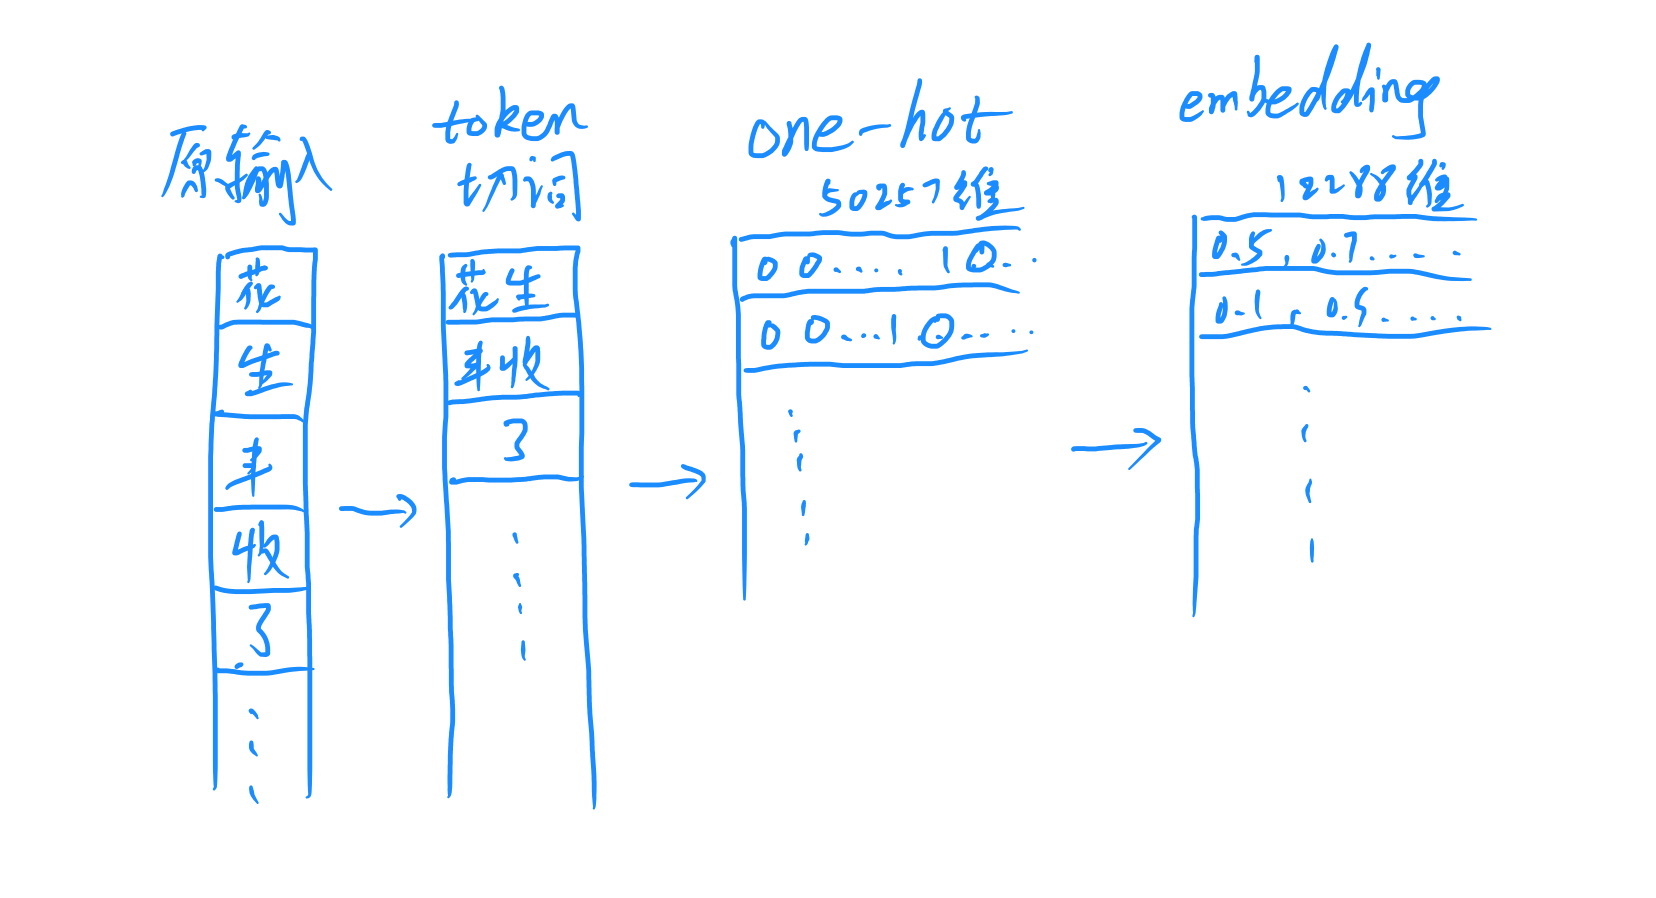 原输入
花
生
丰
收
了
token
切词
花生
丰收
了
one-hot
50257维
0 0 .... 1 0 ...
0 0 ... 1 0 ....
embedding
12288维
0.5, 0.7 .....
0.1, 0.5 .....